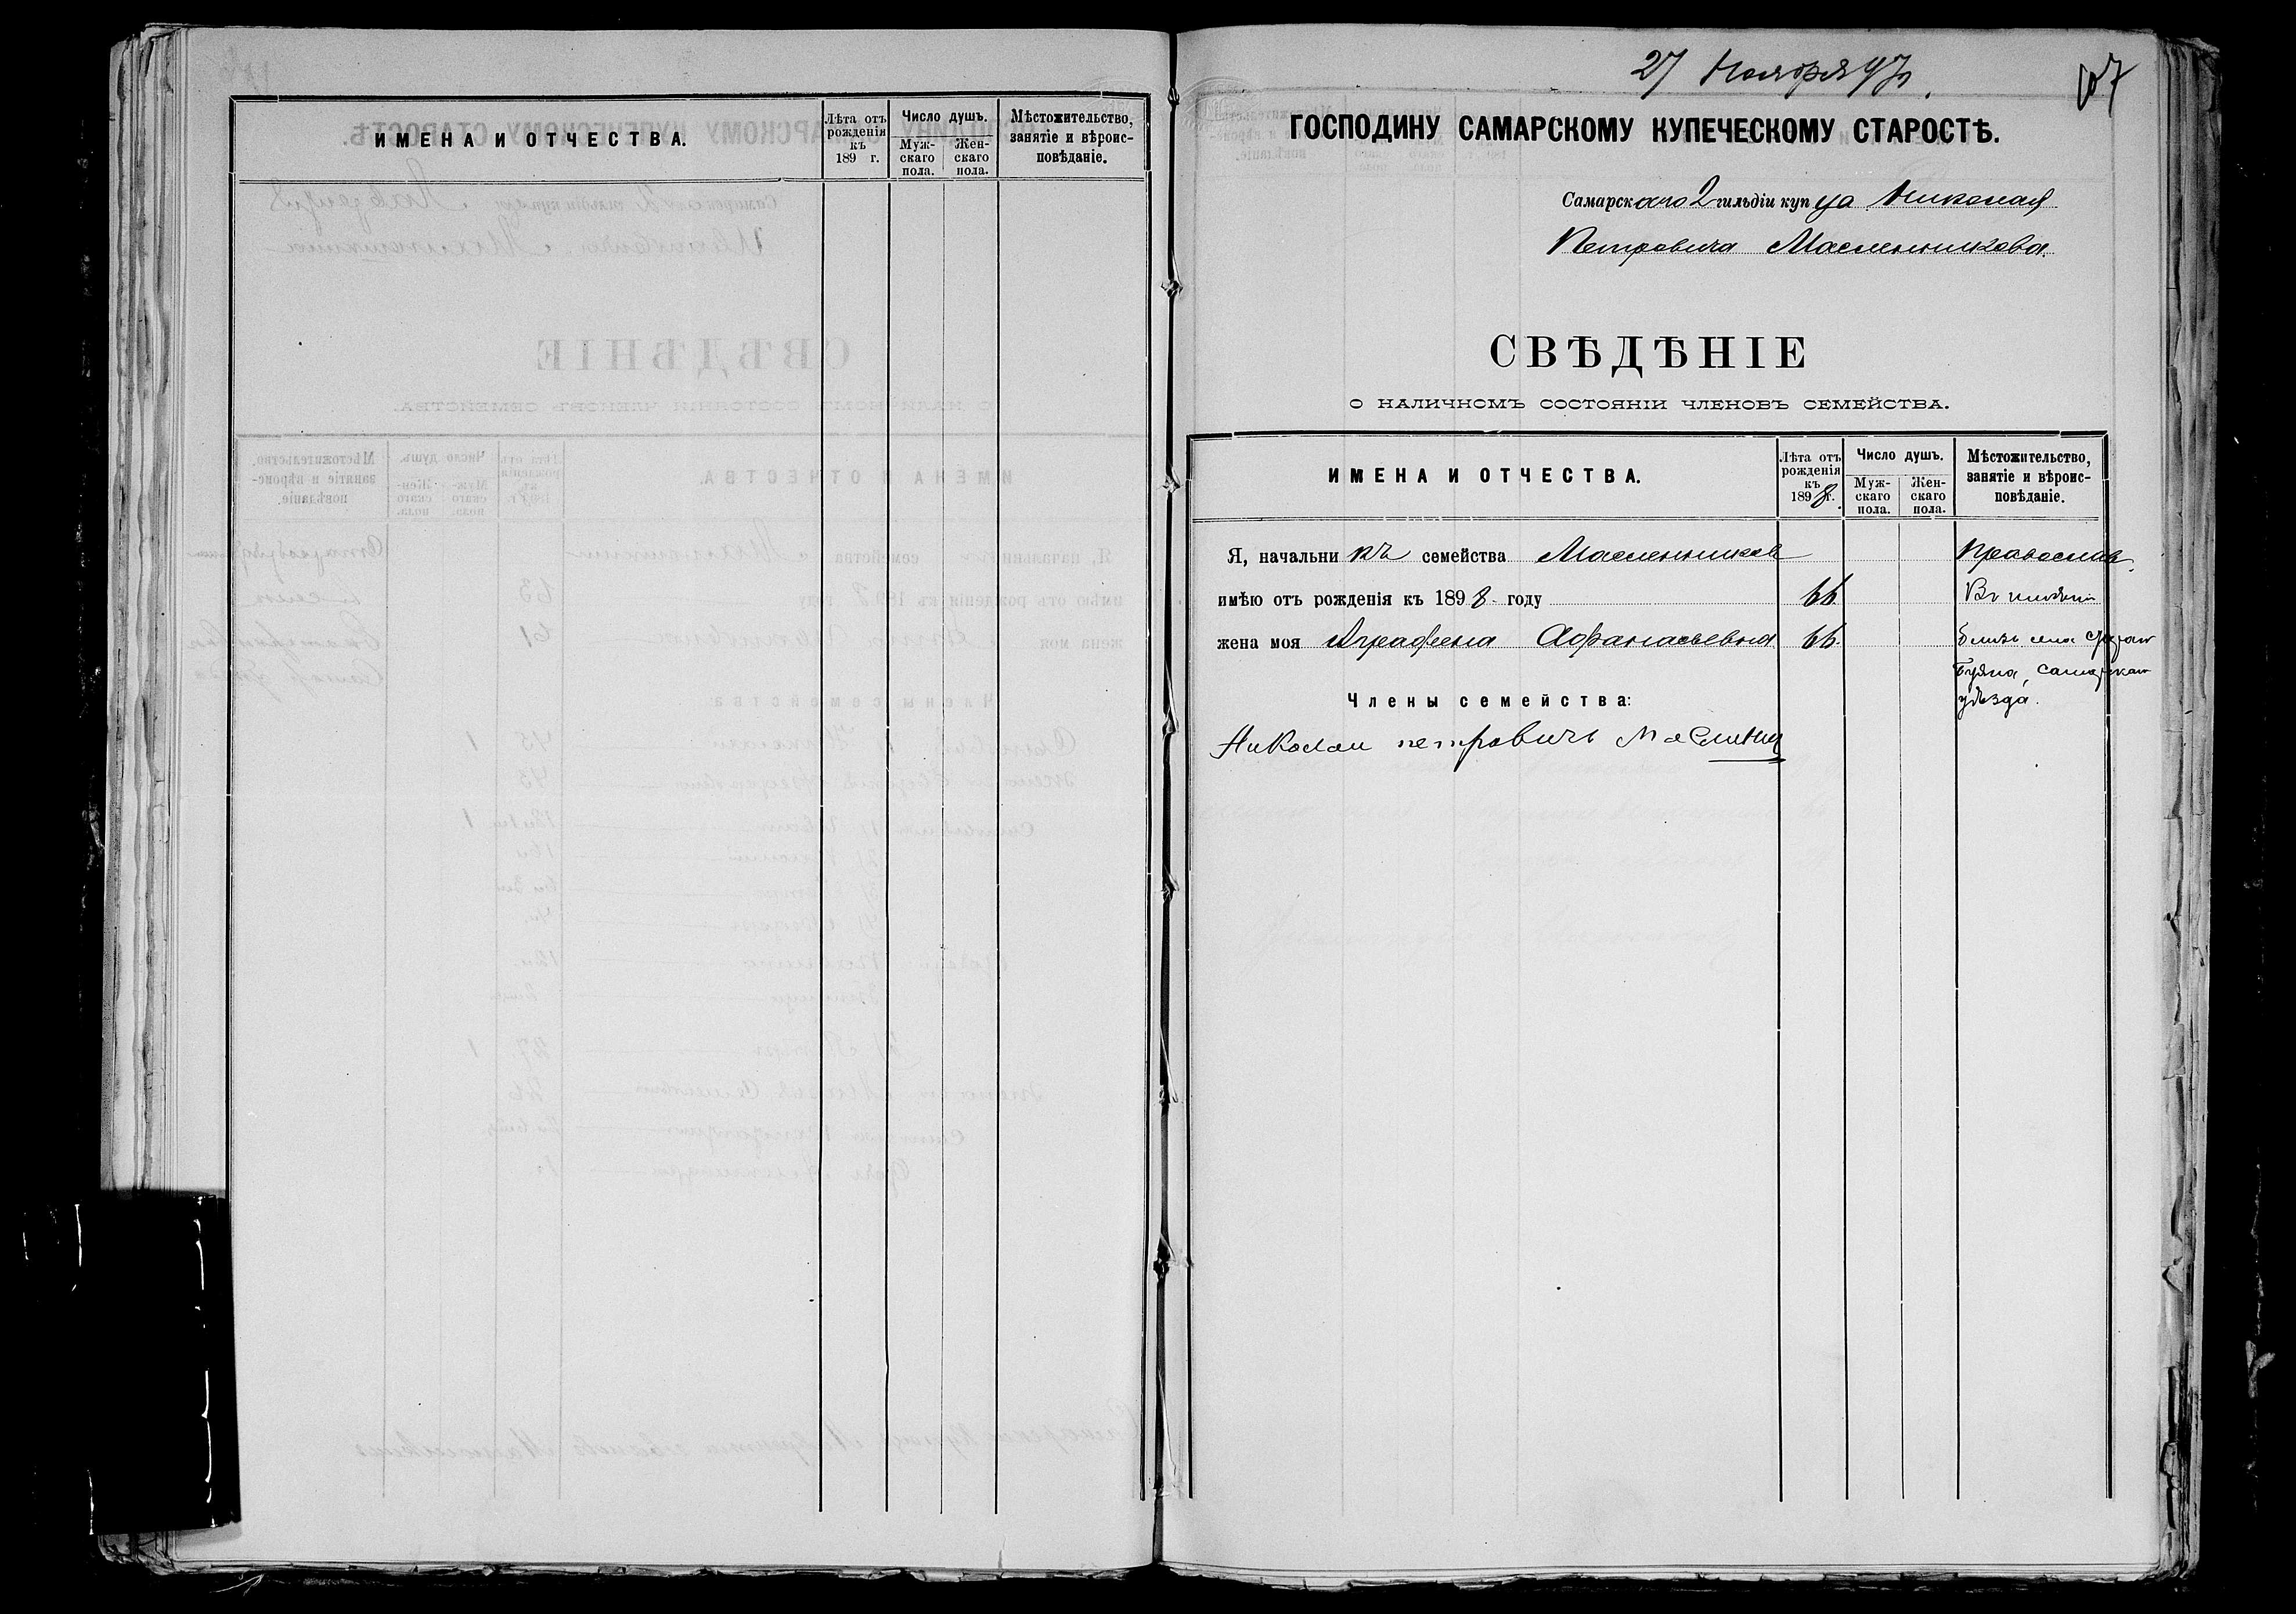 ИМЕНА И ОТЧЕСТВА.
Лѣта отъ рожденія къ 189 г.
Число душъ.
Муж-скаго пола.
Жен-скаго пола.
Мѣстожительство, занятіе и вѣроис-повѣданіе.
27 Ноября 97 г.
107
ГОСПОДИНУ САМАРСКОМУ КУПЕЧЕСКОМУ СТАРОСТѢ.
Самарскаго 2 гильдіи купца Николая
Петровича Масленникова.
СВѢДѢНІЕ
О НАЛИЧНОМЪ СОСТОЯНІИ ЧЛЕНОВЪ СЕМЕЙСТВА.
ИМЕНА И ОТЧЕСТВА.
Лѣта отъ рожденія къ 1898 г.
Число душъ.
Муж-скаго пола.
Жен-скаго пола.
Мѣстожительство, занятіе и вѣроис-повѣданіе.
Я, начальникъ семейства Масленников Православ.
имѣю отъ рожденія къ 1898 году 66
жена моя Аграфена Афанасьевна 66 близь села
Самарскаго
уѣзда.
Члены семейства:
Николаи петровичъ